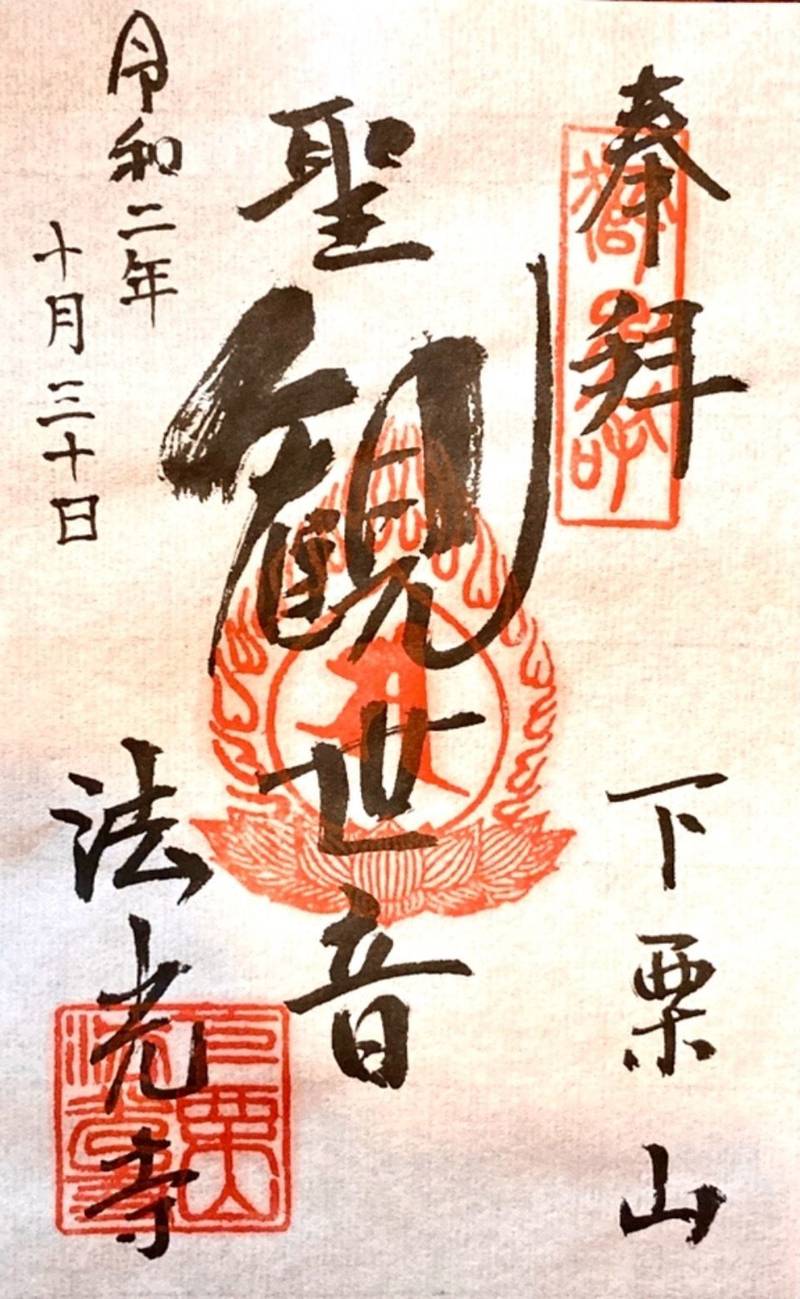 奉拝
下栗山
聖観世音
法光寺
令和二年
十月三十日